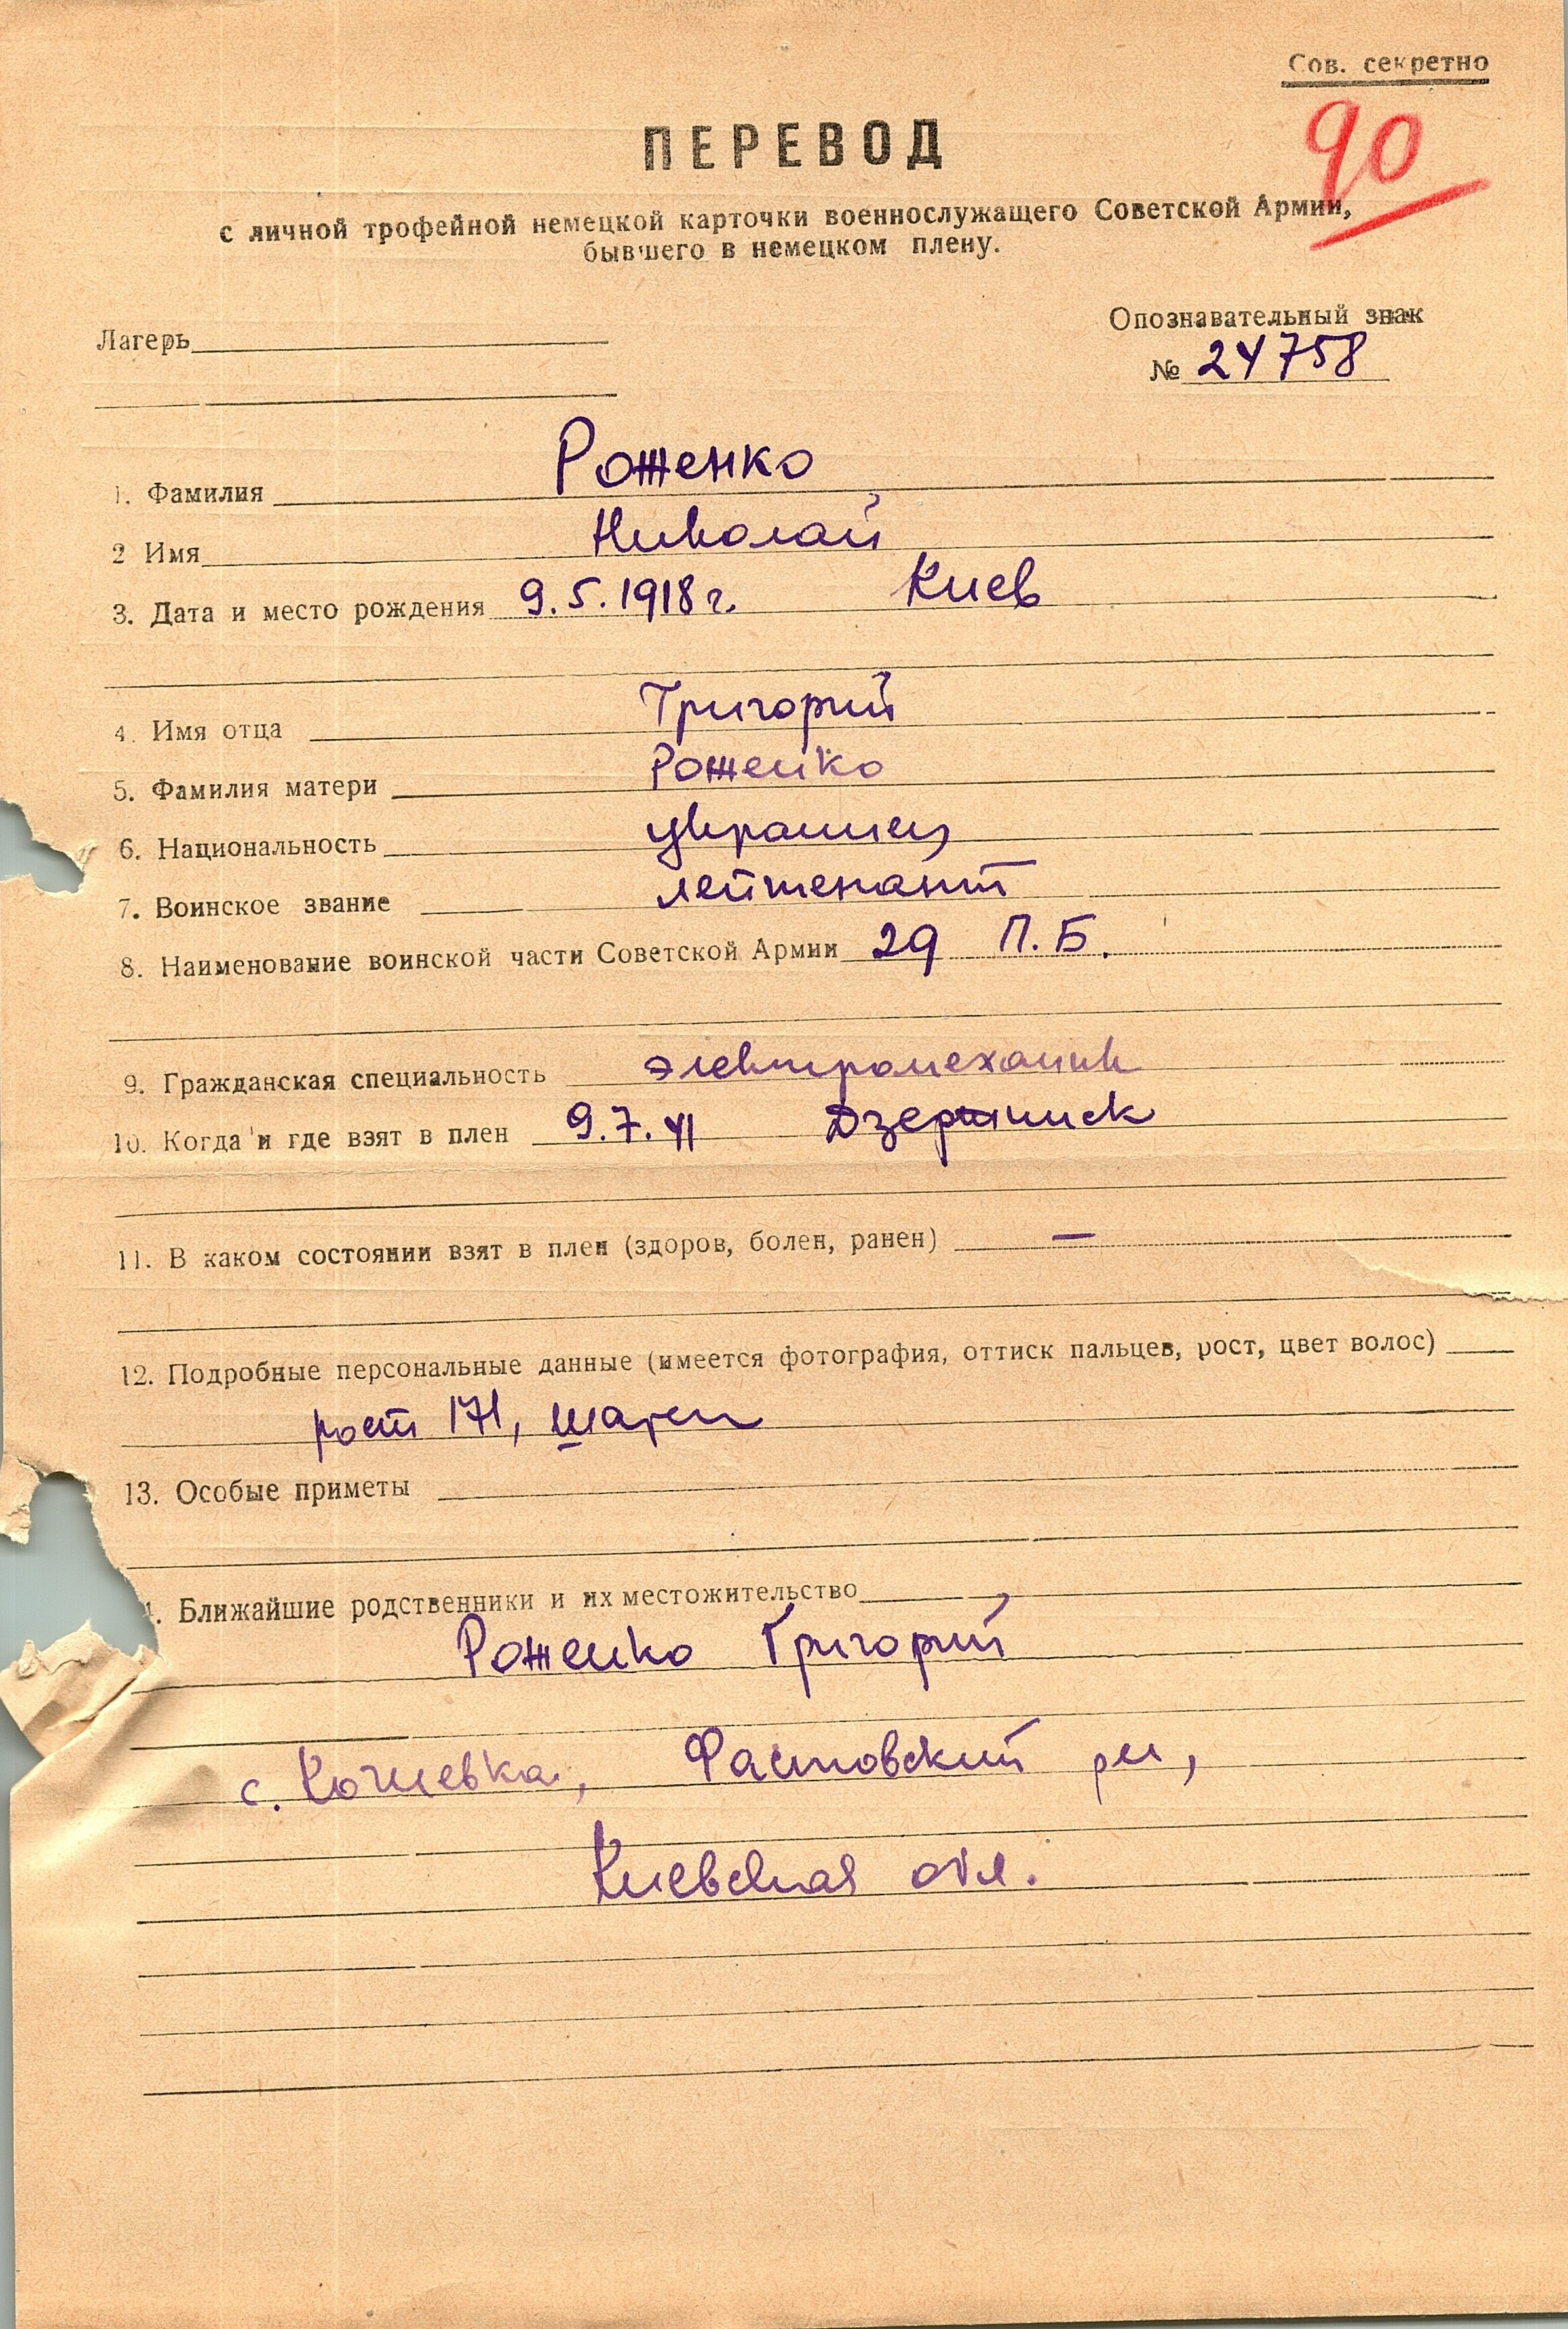 Сов. секретно
90
ПЕРЕВОД
с личной трофейной немецкой карточки военнослужащего Советской Армии,
бывшего в немецком плену.
Лагерь
Опознавательный знак
№ 24758
1. Фамилия Роженко
2 Имя Николай
3. Дата и место рождения 9.5.1918 г. Киев
4. Имя отца Григорий
5. Фамилия матери Роженко
6. Национальность украинец
7. Воинское звание лейтенант
8. Наименование воинской части Советской Армии 29 П.Б.
9. Гражданская специальность электромеханик
10. Когда и где взят в плен 9.7.41 Дзержинск
11. В каком состоянии взят в плен (здоров, болен, ранен) —
12. Подробные персональные данные (имеется фотография, оттиск пальцев, рост, цвет волос)
рост 171, шатен
13. Особые приметы
. Ближайшие родственники и их местожительство
Роженко Григорий
с. Фастовский рн,
Киевская обл.